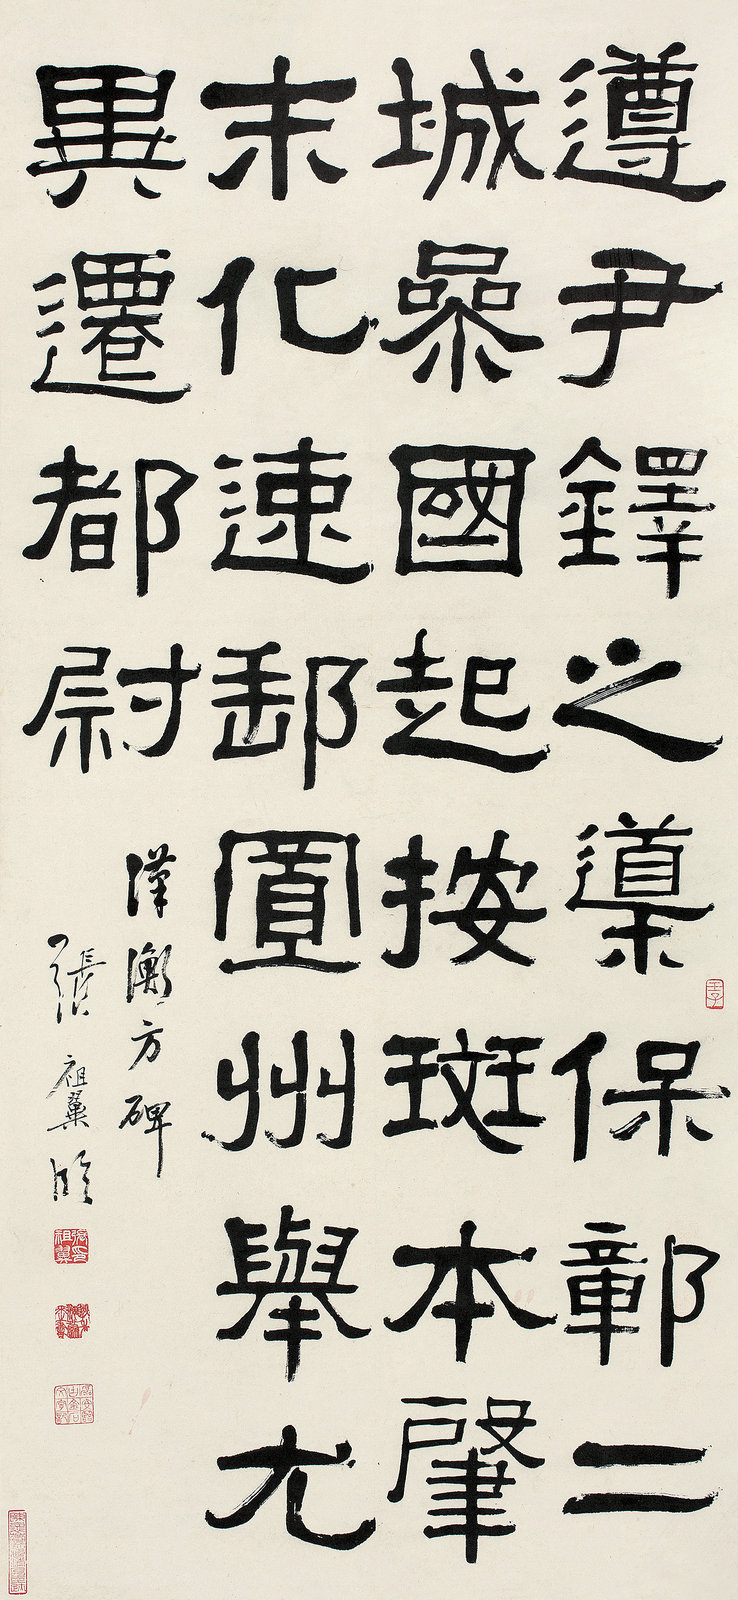 遵尹鐸之導保鄣二
城參國起按斑本肇
末化速郵置州舉尤
異遷都尉
漢衡方碑
張祖翼臨
張印祖翼